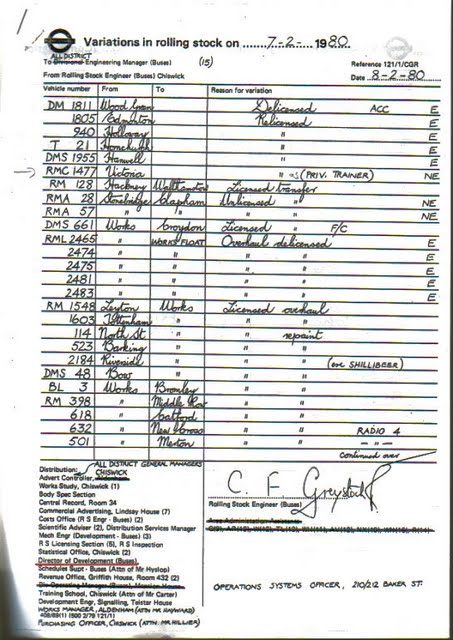 Variations in rolling stock on 7-2-1980
ALL DISTRICT
To Divisional Engineering Manager (Buses) (15) Reference 121/1/CGR
From Rolling Stock Engineer (Buses) Chiswick Date 8-2-80
Vehicle number From To Reason for variation
DM 1811 Wood Green Delicensed ACC E
1805 Edmonton Relicensed E
940 Holloway " E
T 21 Hornchurch " E
DMS 1955 Hanwell " E
RMC 1477 Victoria " as (PRIV. TRAINER) NE
RM 128 Hackney Walthamstow Licensed transfer
RMA 28 Stonebridge Clapham Unlicensed " NE
RMA 57 " " " " NE
DMS 661 Works Croydon Licensed " F/C
RML 2465 " WORKS FLOAT Overhaul delicensed E
2474 " " " " E
2475 " " " " E
2481 " " " " E
2483 " " " " E
RM 1548 Leyton Works Licensed overhaul
1603 Tottenham " " "
114 North St " " repaint
523 Barking " " "
2184 Riverside " " " (one SHILLIBEER)
DMS 48 Bow " " "
BL 3 Works Bromley " "
RM 398 " Middle Row " "
618 " Catford " "
632 " New Cross " " RADIO 4
501 " Merton " " — " —
Continued over
Distribution: ALL DISTRICT GENERAL MANAGERS
CHISWICK
Advert Controller, Aldenham
Works Study, Chiswick (1)
Body Spec Section
Central Record, Room 34
Commercial Advertising, Lindsay House (7)
Costs Office (R S Engr - Buses) (2)
Scientific Adviser (2), Distribution Services Manager
Mech Engr (Development - Buses) (3)
R S Licensing Section (5), R S Inspection
Statistical Office, Chiswick (2)
Director of Development (Buses)
Schedules Supt - Buses (Attn of Mr Hyslop)
Revenue Office, Griffith House, Room 432 (2)
Training School, Chiswick (Attn of Mr Carter)
Development Engr, Signalling, Telstar House
WORKS MANAGER, ALDENHAM (ATTN MR HAYWARD)
PURCHASING OFFICER, CHISWICK (ATTN. MR. HILLIER)
C. F. Greystock
Rolling Stock Engineer (Buses)
Area Administration Assistants
OPERATIONS SYSTEMS OFFICER, 210/212 BAKER ST.